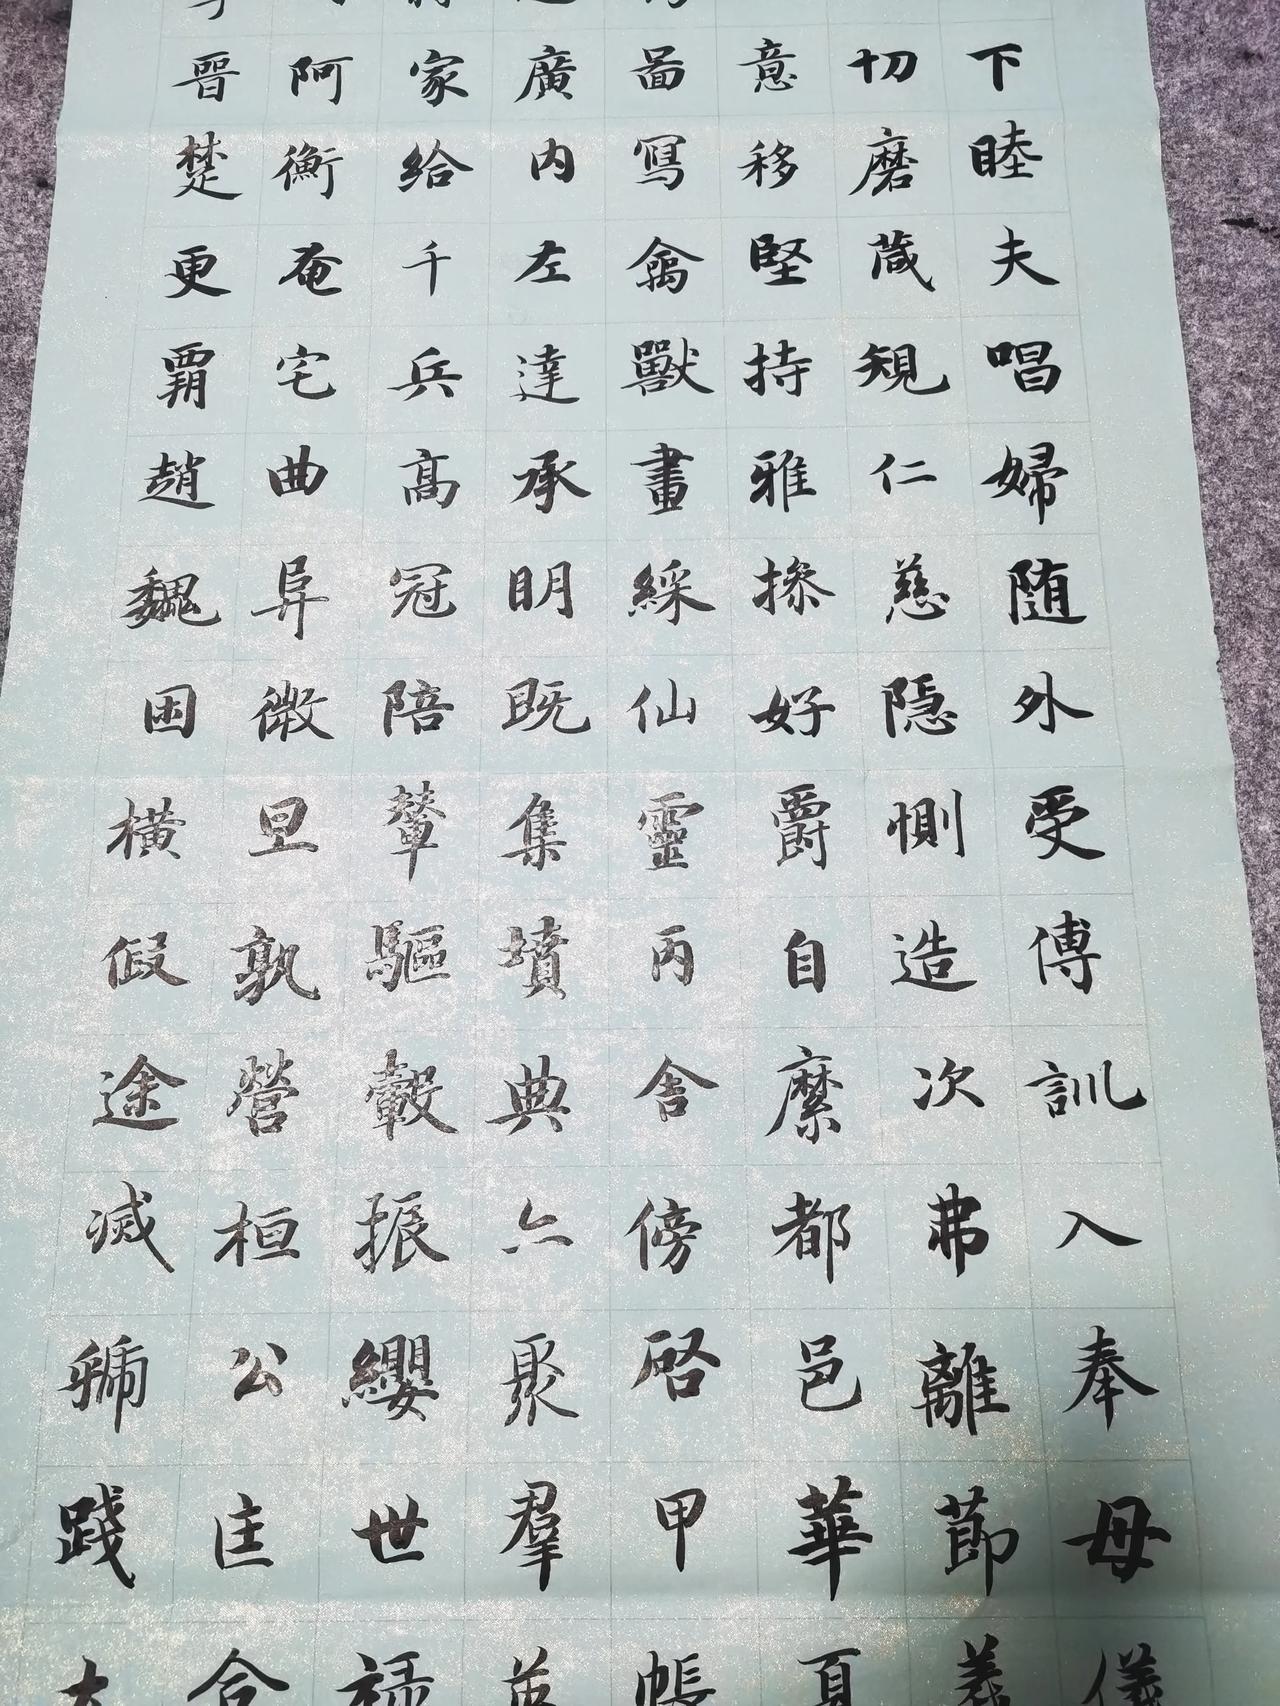 下睦夫唱婦随外受傅訓入奉母儀
切磨葴規仁慈隠惻造次弗離莭義
意移堅持雅操好爵自縻都邑華夏
啚寫禽獸畫綵仙靈丙舎傍啓甲帳
廣内左達承明既集墳典亦聚羣英
家給千兵高冠陪輦驅轂振纓世禄
阿衡奄宅曲阜微旦孰營桓公匡合
晉楚更覇趙魏困橫假途滅虢踐土